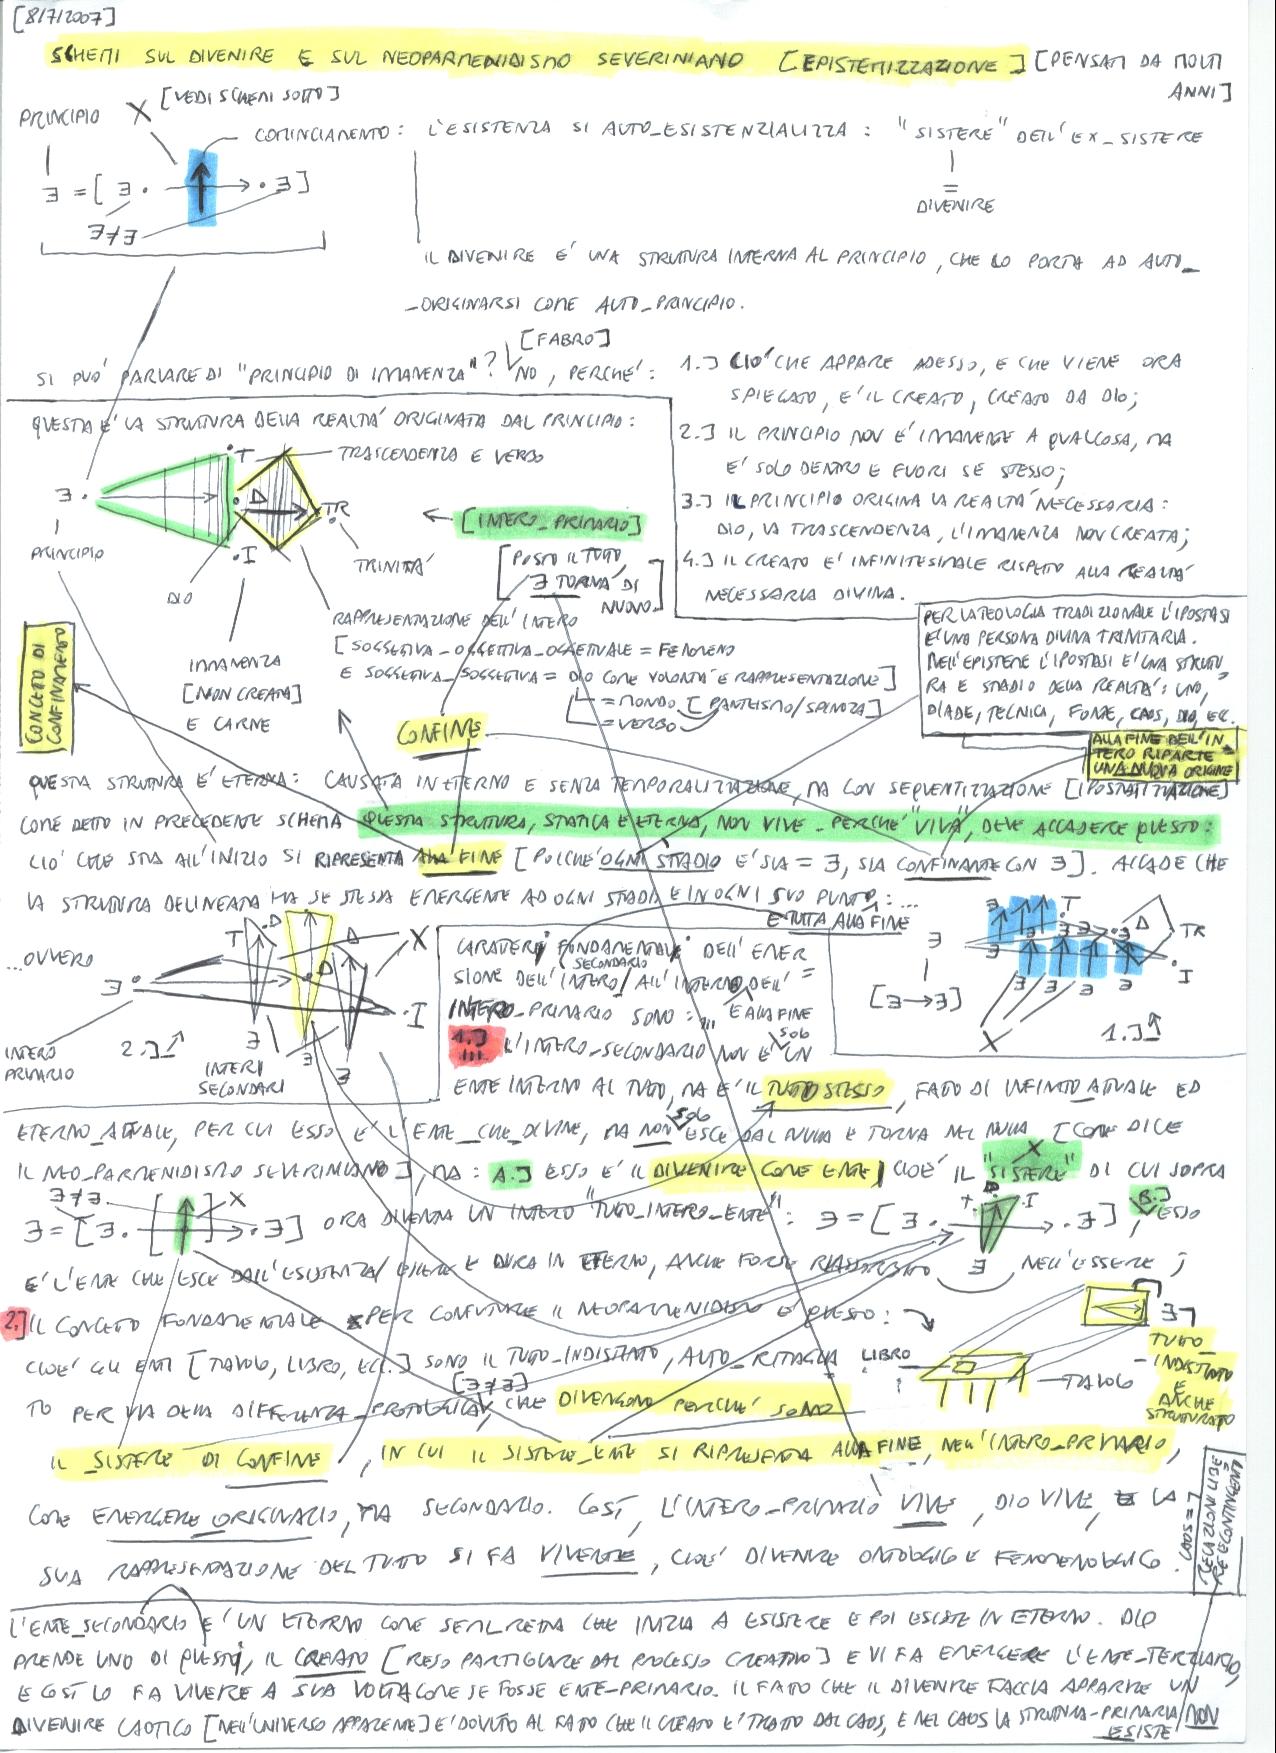 [8/7/2007]
SCHEMI SUL DIVENIRE E SUL NEOPARMENIDISMO SEVERINIANO [EPISTEMIZZAZIONE] [PENSATI DA MOLTI
ANNI]
PRINCIPIO X [VEDI SCHEMI SOTTO]
COMINCIAMENTO: L'ESISTENZA SI AUTO_ESISTENZIALIZZA: "SISTERE" DELL'EX_SISTERE
=
DIVENIRE
∃ = [∃ . → . ∃]
∃≠∃
IL DIVENIRE E' UNA STRUTTURA INTERNA AL PRINCIPIO, CHE LO PORTA AD AUTO_
_ORIGINARSI COME AUTO_PRINCIPIO.
[FABRO]
SI PUO' PARLARE DI "PRINCIPIO DI IMMANENZA"? NO, PERCHE':
1.] CIO' CHE APPARE ADESSO, E CHE VIENE ORA
SPIEGATO, E' IL CREATO, CREATO DA DIO;
2.] IL PRINCIPIO NON E' IMMANENTE A QUALCOSA, MA
E' SOLO DENTRO E FUORI SE STESSO;
3.] IL PRINCIPIO ORIGINA LA REALTA' NECESSARIA:
DIO, LA TRASCENDENZA, L'IMMANENZA NON CREATA;
4.] IL CREATO E' INFINITESIMALE RISPETTO ALLA REALTA'
NECESSARIA DIVINA.
QUESTA E' LA STRUTTURA DELLA REALTA' ORIGINATA DAL PRINCIPIO:
.T TRASCENDENZA E VERBO
∃ .
D
TR
.I
PRINCIPIO
DIO
TRINITA'
← [INTERO_PRIMARIO]
[POSTO IL TUTTO,
∃ TORNA DI
NUOVO]
IMMANENZA
[NON CREATA]
E CARNE
RAPPRESENTAZIONE DELL'INTERO
[SOGGETTIVA_OGGETTIVA_OGGETTUALE = FENOMENO
E SOGGETTIVA_SOGGETTIVA = DIO COME VOLONTA' E RAPPRESENTAZIONE]
= MONDO [PANTEISMO/SPINOZA]
= VERBO
CONCETTO DI
CONFINAMENTO
CONFINE
PER LA TEOLOGIA TRADIZIONALE L'IPOSTASI
E' UNA PERSONA DIVINA TRINITARIA.
NELL'EPISTEME L'IPOSTASI E' UNA STRUTTU
RA E STADIO DELLA REALTA': UNO,
DIADE, TECNICA, FONTE, CAOS, DIO, ECC.
ALLA FINE DELL'IN
TERO RIPARTE
UNA NUOVA ORIGINE
QUESTA STRUTTURA E' ETERNA: CAUSATA IN ETERNO E SENZA TEMPORALIZZAZIONE, MA CON SEQUENTIZZAZIONE [IPOSTATIZZAZIONE]
COME DETTO IN PRECEDENTE SCHEMA QUESTA STRUTTURA, STATICA E ETERNA, NON VIVE_PERCHE' "VIVA", DEVE ACCADERE QUESTO:
CIO' CHE STA ALL'INIZIO SI RIPRESENTA ALLA FINE [POICHE' OGNI STADIO E' SIA = ∃, SIA CONFINANTE CON ∃]. ACCADE CHE
LA STRUTTURA DELINEATA HA SE STESSA EMERGENTE AD OGNI STADIO E IN OGNI SUO PUNTO:...
E TUTTA ALLA FINE
...OVVERO
∃ .
T
.D
D
X
.I
INTERO
PRIMARIO
2.]
INTERI
SECONDARI
∃
∃
∃
CARATTERI FONDAMENTALI DELL'EMER
SIONE DELL'INTERO/ALL'INTERNO DELL'=
SECONDARIO
INTERO_PRIMARIO SONO: ... E ALLA FINE
1.] L'INTERO_SECONDARIO NON E' SOLO UN
∃
[∃→∃]
.T
D
TR
.I
X
1.]
ENTE INTERNO AL TUTTO, MA E' IL TUTTO STESSO, FATTO DI INFINITO_ATTUALE ED
ETERNO_ATTUALE, PER CUI ESSO E' L'ENTE_CHE_DIVIENE, MA NON SOLO ESCE DAL NULLA E TORNA NEL NULLA [COME DICE
IL NEO_PARMENIDISMO SEVERINIANO], MA: A.] ESSO E' IL DIVENIRE COME ENTE, CIOE' IL "SISTERE" DI CUI SOPRA
∃≠∃
X
∃=[∃.[→].∃] ORA DIVENTA UN INTERO "TUTTO_INTERO_ENTE": ∃=[∃. → .∃], B.] ESSO
E' L'ENTE CHE ESCE DALL'ESISTENZA/ESSERE E DURA IN ETERNO, ANCHE FORSE RIASSORBITO NELL'ESSERE;
2.] IL CONCETTO FONDAMENTALE PER CONFUTARE IL NEOPARMENIDISMO E' QUESTO:
CIOE' GLI ENTI [TAVOLO, LIBRO, ECC.] SONO IL TUTTO_INDISTINTO, AUTO_RITAGLIA
LIBRO
TAVOLO
∃
TUTTO
_INDISTINTO
E
ANCHE
STRUTTURATO
[∃≠∃]
TO PER VIA DELLA DIFFERENZA_PROTOLOGICA, CHE DIVENGONO PERCHE' SONO
IL_SISTERE DI CONFINE, IN CUI IL SISTERE_ENTE SI RIPRESENTA ALLA FINE, NELL'INTERO_PRIMARIO,
COME EMERGERE ORIGINARIO, MA SECONDARIO. COSI', L'INTERO_PRIMARIO VIVE, DIO VIVE, LA
SUA RAPPRESENTAZIONE DEL TUTTO SI FA VIVENTE, CIOE' DIVENIRE ONTOLOGICO E FENOMENOLOGICO.
CAOS =
RELAZIONI LIBE
RE E CONTINGENTI
L'ENTE_SECONDARIO E' UN ETERNO COME SEMIRETTA CHE INIZIA A ESISTERE E POI ESISTE IN ETERNO. DIO
PRENDE UNO DI QUESTI, IL CREATO [RESO PARTICOLARE DAL PROCESSO CREATIVO] E VI FA EMERGERE L'ENTE_TERZIARIO,
E COSI' LO FA VIVERE A SUA VOLTA COME SE FOSSE ENTE_PRIMARIO. IL FATTO CHE IL DIVENIRE FACCIA APPARIRE UN
DIVENIRE CAOTICO [NELL'UNIVERSO APPARENTE] E' DOVUTO AL FATTO CHE IL CREATO E' TRATTO DAL CAOS, E NEL CAOS LA STRUTTURA_PRIMARIA NON
ESISTE